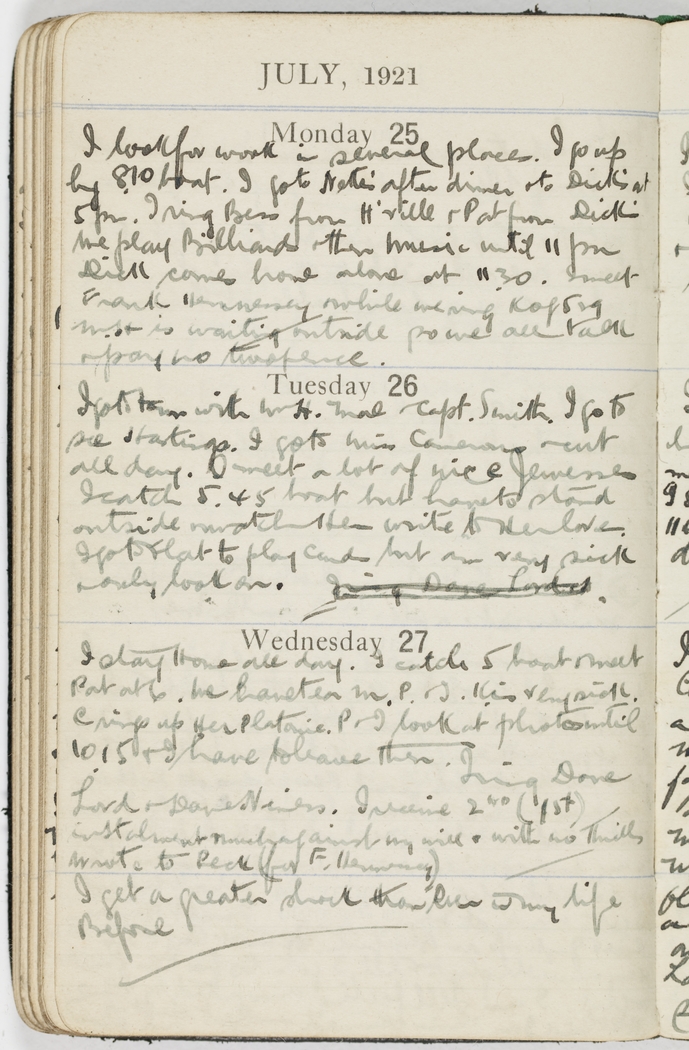 JULY, 1921
Monday 25
I look for work in several places. I go up
by 8.10 boat. I go to Nete's after dinner & to Dick's at
5 pm. I ring Bess from H'ville & Pat from Dick's
we play Billiards & then music until 11 pm
Dick comes home alone at 11.30. I meet
Frank Hennessey & while we ring
is waiting outside so we all talk
& pay no twopence.
Tuesday 26
I go to town with Mr H. Mal & Capt. Smith. I go to
see Hastings. I go to Miss Camerons & cut
all day. I meet a lot of nice Jewesses
I catch 5.45 boat but have to stand
outside & watch them write to Her love.
I go to flat to play cards but am very sick
& only look on. I ring Dave Lord
Wednesday 27
I stay Home all day. I catch 5 boat & meet
Pat at 6. We have tea M. P. & I. K is very sick.
C rings up Her Platonic. P & I look at photos until
10.15 & I have to leave then. I ring Dave
Lord & Dave Niness. I receive 2nd (1/5t)
instalment & much against my will & with no thrills
wrote to Peck (for F. Hennessey)
I get a greater shock than Ever in my life
Before